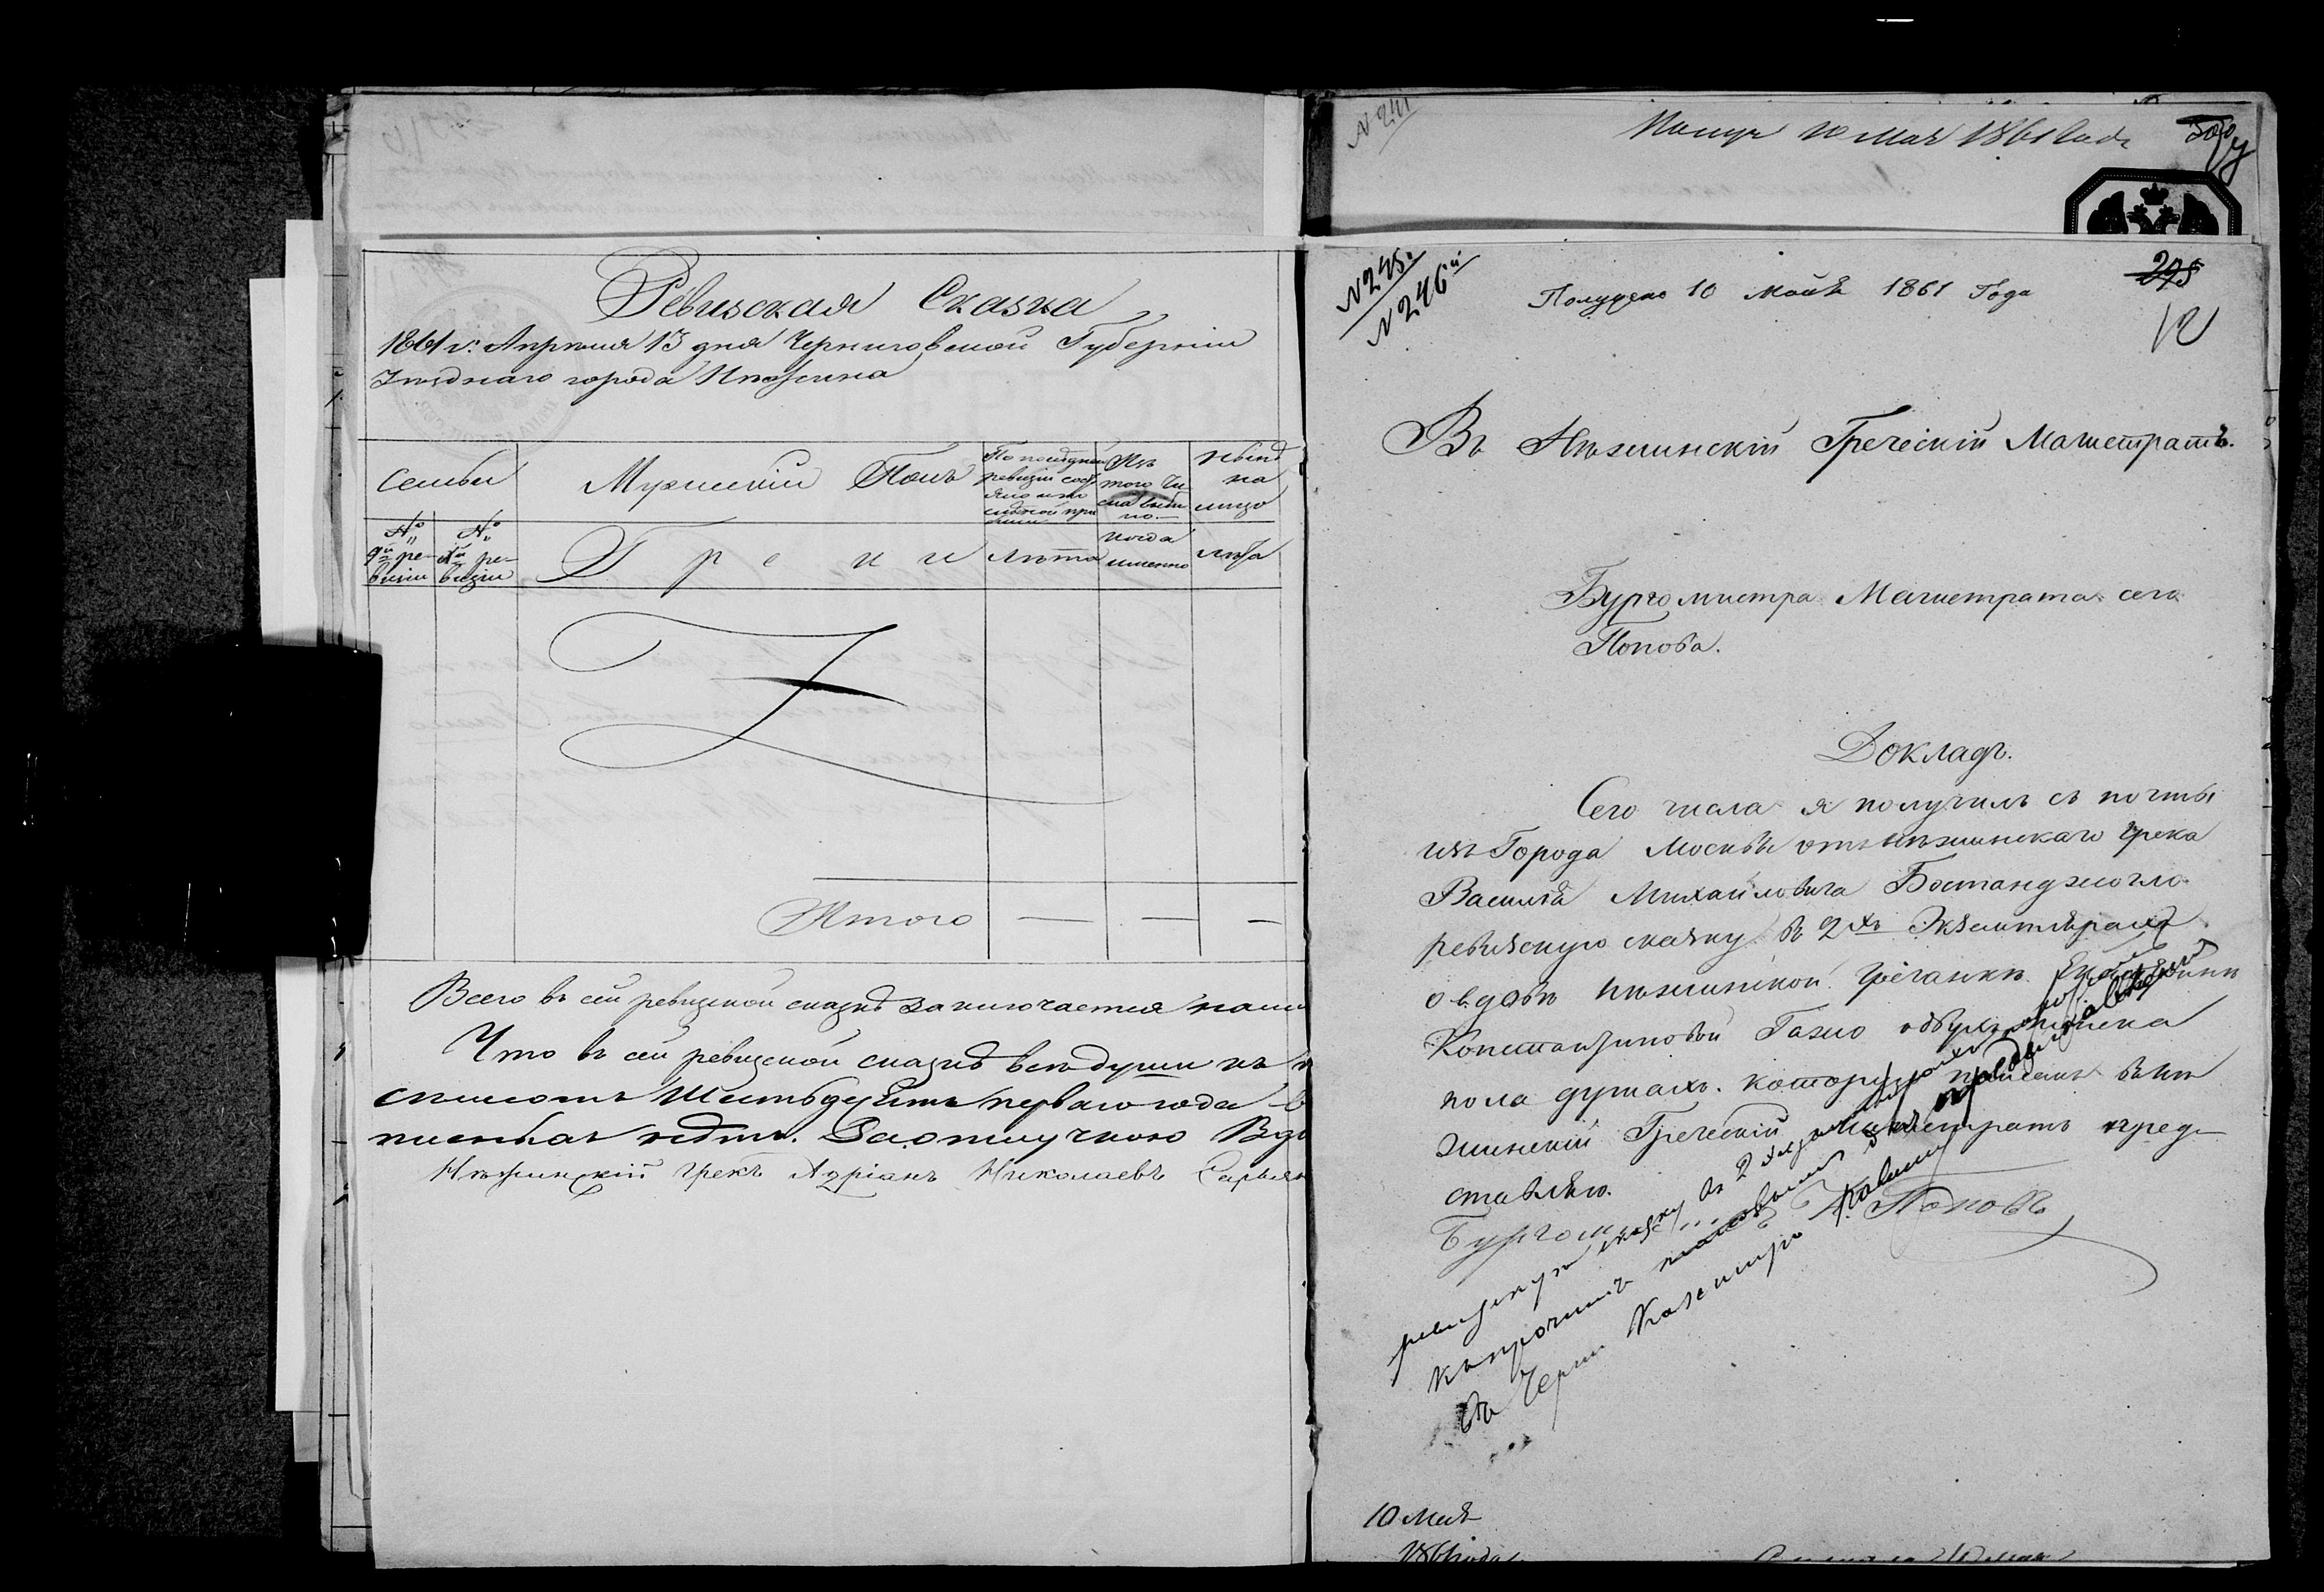 Ревизская Сказка
1861 г: Апреля 13 дня Черниговской Губернии
Уѣзднаго города Нѣжина
Семьи
Мужескій Полъ
По послѣдней
ревизіи состояло
Изъ
того числа
выбыло
нынѣ
на
лицо
№
9й ревизіи
№
10й ревизіи
Греки
лѣта
когда
именно
лѣта
Итого
Всего въ сей ревизской сказкѣ заключается
Что въ сей ревизской сказкѣ всѣ души къ
шестьдесятъ перваго года
нѣтъ.
Нѣжинскій грекъ Адріанъ Николаевъ
N 241
Получ 10 Мая 1861 года
N 245.
N 246й
Получено 10 Майя 1861 Года
295
12
Въ Нѣжинскій Греческій Магистратъ.
Бургомистра Магистрата сего
Попова.
Докладъ.
Сего числа я получилъ съ почты
изъ Города Москвы отъ Нѣжинскаго грека
Василія Михайловича Бостанджогло
ревизскую сказку въ 2хъ Экземплярахъ
о вдовѣ нѣжинской гречанки Екатеринѣ
Константиновой Газио о двухъ женска
пола душахъ. которую въ Нѣ
жинскій Греческій Магистратъ пред
ставляю.
Бургомистръ Поповъ
ревизскую сказку въ 2 экземплярахъ
къ прочимъ
въ Черни Казенную Палату
10 Мая
1861 года